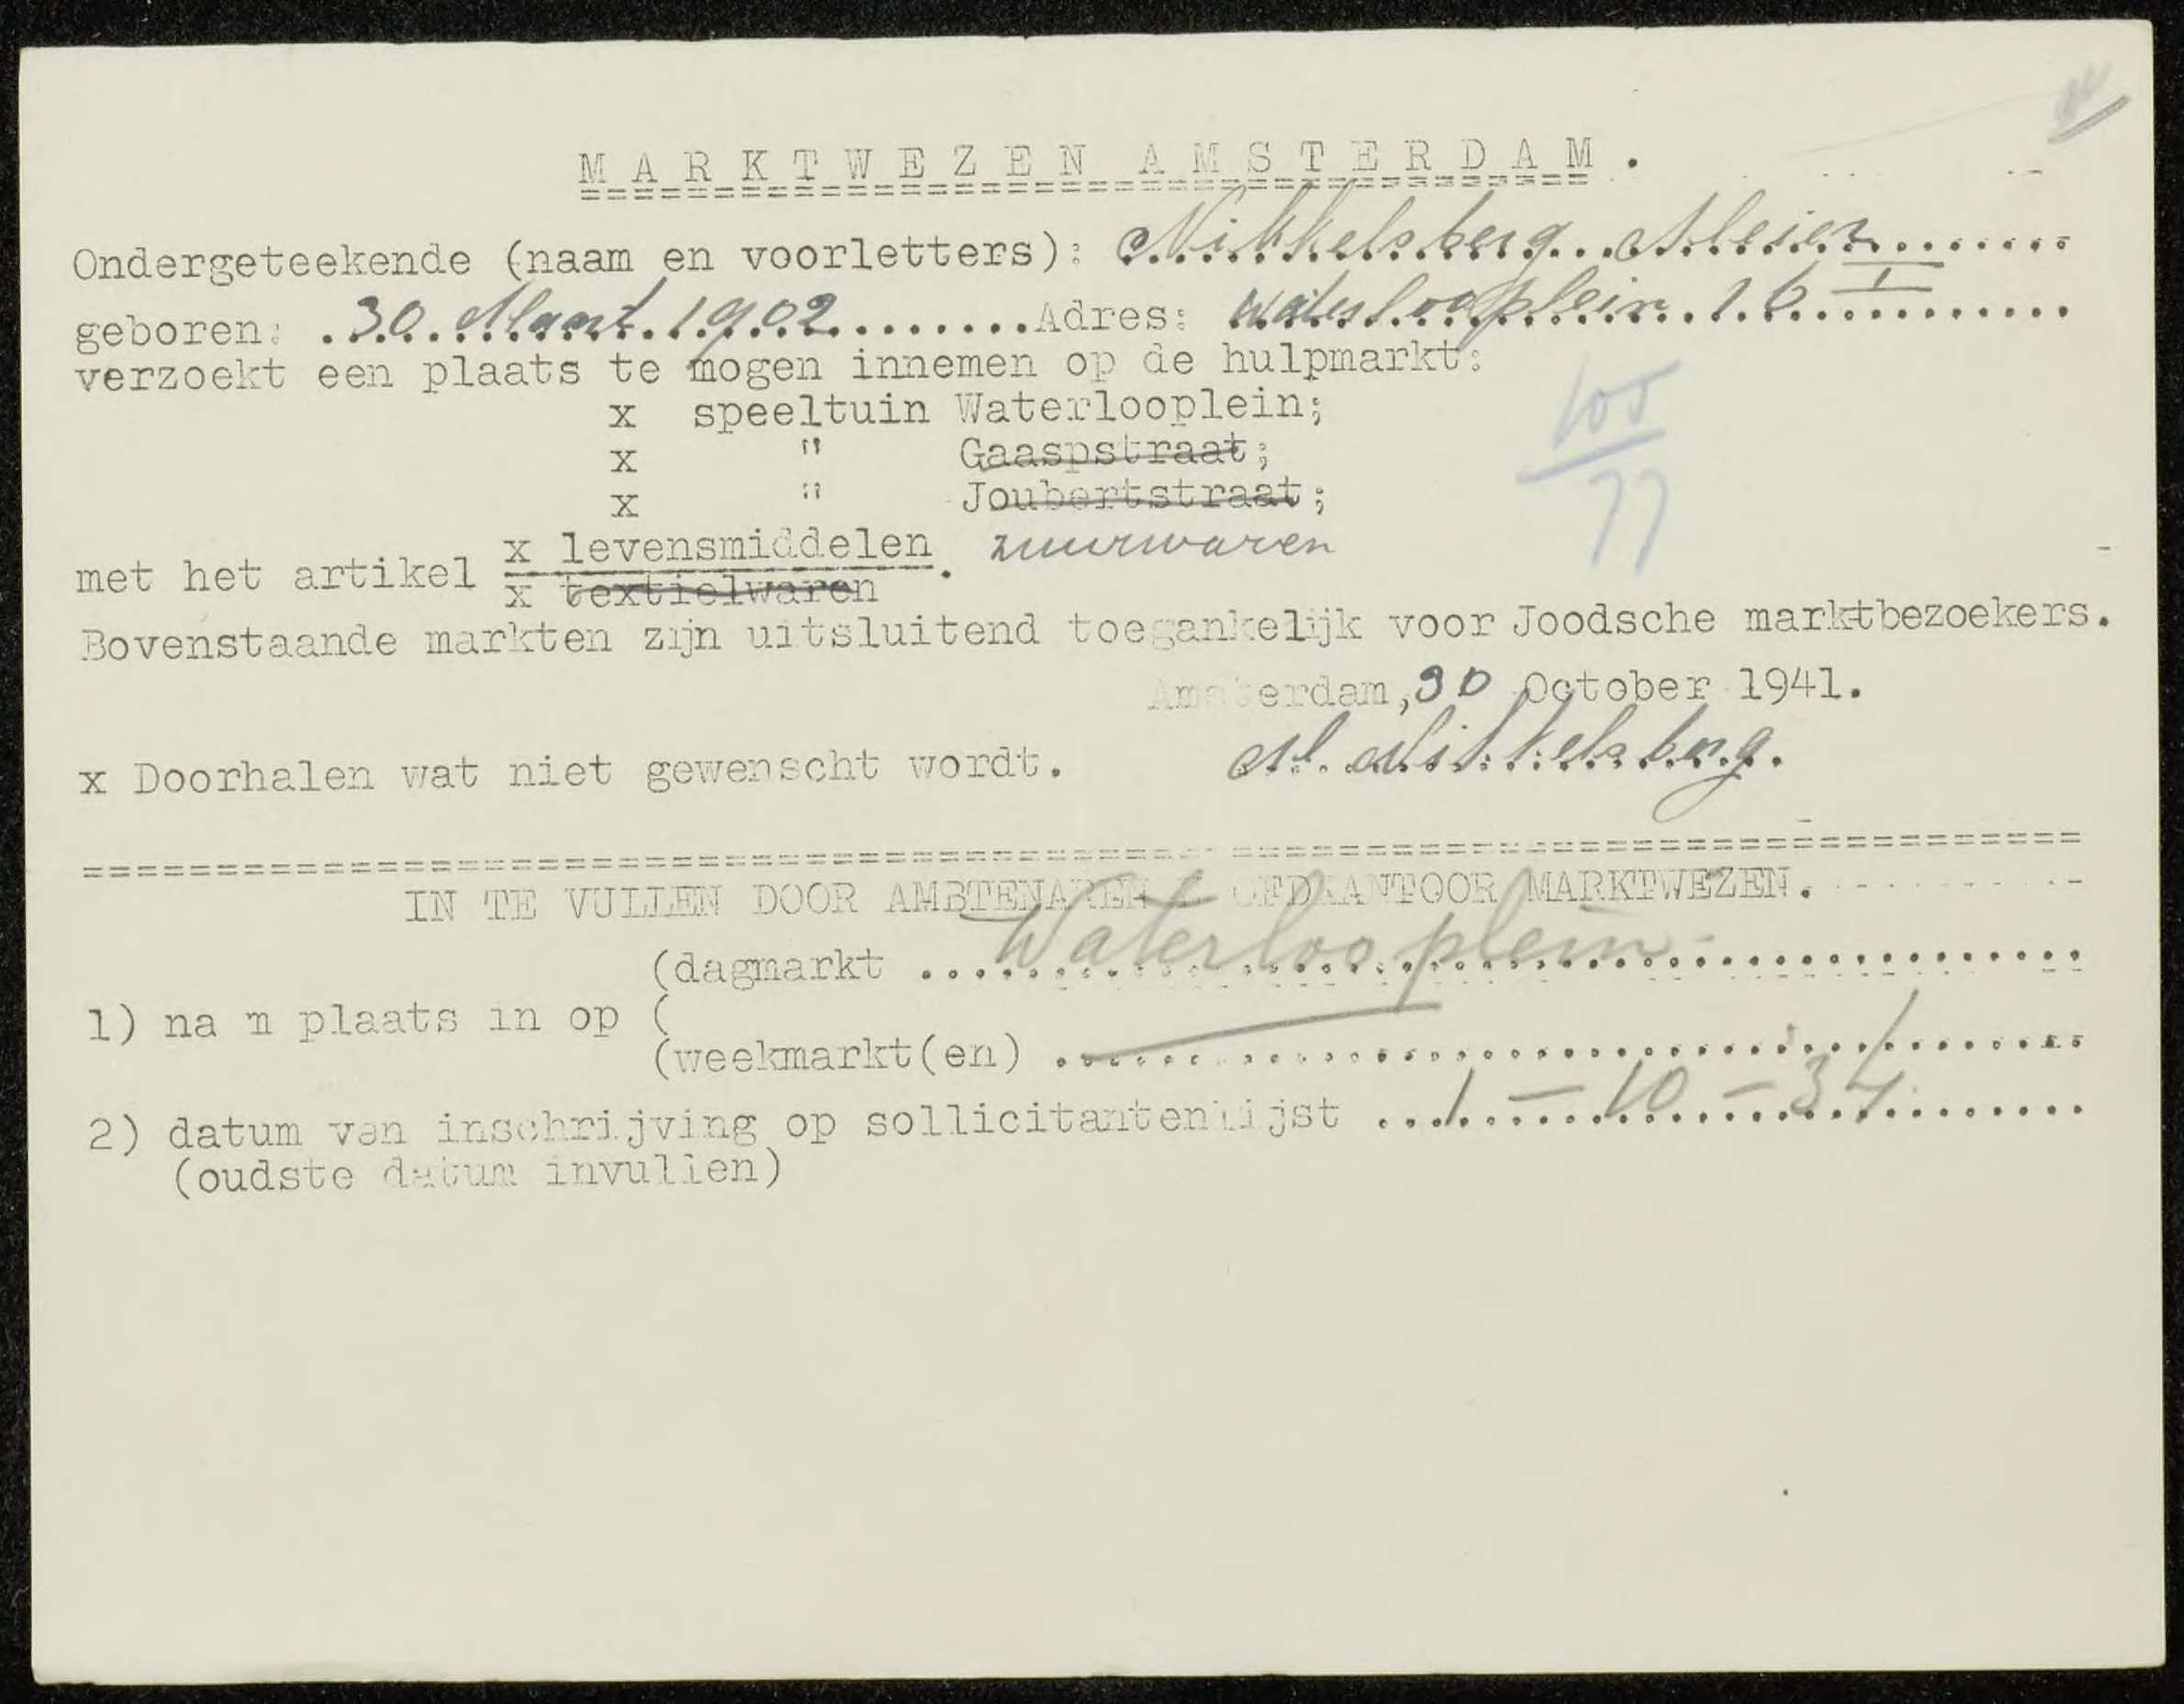 MARKTWEZEN AMSTERDAM.
Ondergeteekende (naam en voorletters): Nikkelsberg Meier
geboren: 30 Maart 1902 Adres: Waterlooplein 16 I
verzoekt een plaats te mogen innemen op de hulpmarkt:
x speeltuin Waterlooplein;
x " Gaaspstraat;
x " Joubertstraat;
100
77
x levensmiddelen zuurwaren
met het artikel
x textielwaren.
Bovenstaande markten zijn uitsluitend toegankelijk voor Joodsche marktbezoekers.
Amsterdam, 30 October 1941.
x Doorhalen wat niet gewenscht wordt. M. Nikkelsberg.
IN TE VULLEN DOOR AMBTENAREN HOOFDKANTOOR MARKTWEZEN.
(dagmarkt Waterlooplein
1) nam plaats in op (
(weekmarkt(en)
2) datum van inschrijving op sollicitantenlijst 1-10-34
(oudste datum invullen)